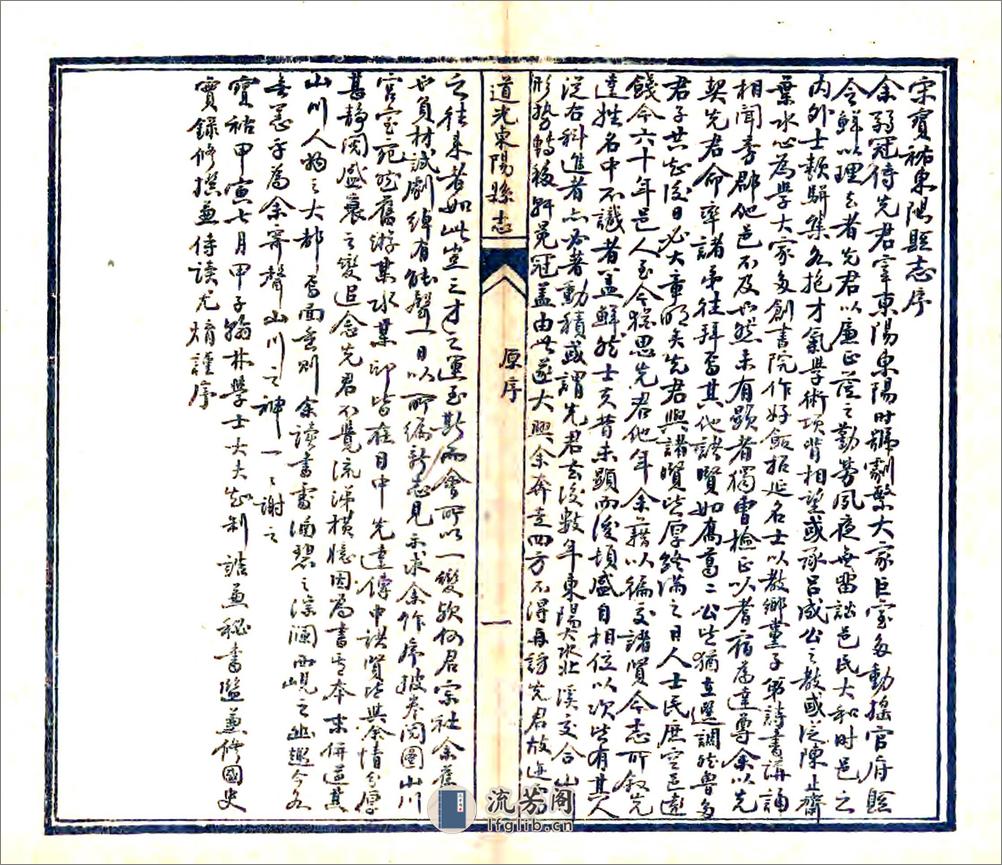 宋寶祐東陽縣志序
余弱冠侍先君宰東陽東陽時號劇繁大家巨室多動搖官府縣
令鮮以理去者先君以廉正蒞之勤勞夙夜無留訟邑民大和時邑之
內外士類駢集各抱才氣學術項背相望或承呂成公之教或從陳止齋
葉水心為學大家多創書院作好飯招延名士以教鄉黨子弟詩書講誦
相聞旁郡他邑不及也然未有顯者獨曹檢正以耆宿為達尊余以先
契先君命率諸弟往拜焉其他諸賢如喬葛二公皆猶在選調然魯多
君子共知後日必大重明矣先君與諸賢皆厚終滿之日人士民庶空邑遠
餞今六十年邑人至今猶思先君他年余藉以徧交諸賢今志所叙先
達姓名中不識者蓋鮮然士夫昔未顯而後頓盛自相位以次皆有其人
從右科進者亦各著勳積或謂先君去後數年東陽大水壯溪交合山川
形勢轉移軒冕冠蓋由此遂大興余奔走四方不得再訪先君故迹
之往來者如此豈三才之運至斯而會所以一變歟何君宗社余舊
也負材試劇綽有能聲一日以所編新志見示求余作序披卷閱圖山川
宮室宛然舊游某水某邱皆在目中先達傳中諸賢皆與余情分厚
甚靜閱盛衰之變追念先君不覺流涕橫臆因為書其本末併道其
山川人物之大都焉西重則余讀書處涵碧之深瀾西峴之幽趣今各
無恙乎為余寄聲山川之神一一謝之
寶祐甲寅七月甲子翰林學士大夫知制誥兼秘書監兼修國史
實錄修撰兼侍讀尤焴謹序
道光東陽縣志
原序
一
流芳閣
lfglib.cn